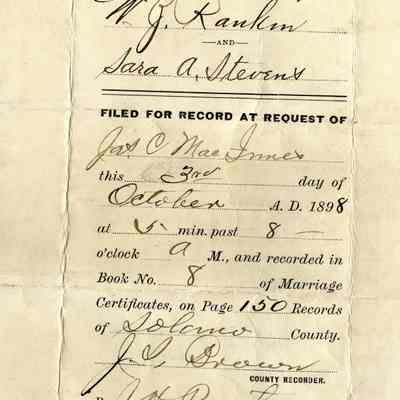 W. J. Rankin
—AND—
Sara A. Stevens
FILED FOR RECORD AT REQUEST OF
Jas. C. MacInnes
this 3rd day of
October A. D. 1898
at 5 min. past 8 —
o'clock A M., and recorded in
Book No. 8 of Marriage
Certificates, on Page 150 Records
of Solano County.
J. S. Brown
COUNTY RECORDER.